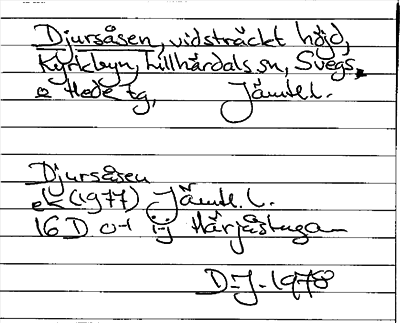 Djursåsen, vidsträckt höjd,
Kyrkbyn, Lillhärdals sn, Svegs
o Hede tg, Jämtl. l.
Djursåsen
ek (1977) Jämtl. l.
16 D o-i ij Härjåstugan
D.J. 1978